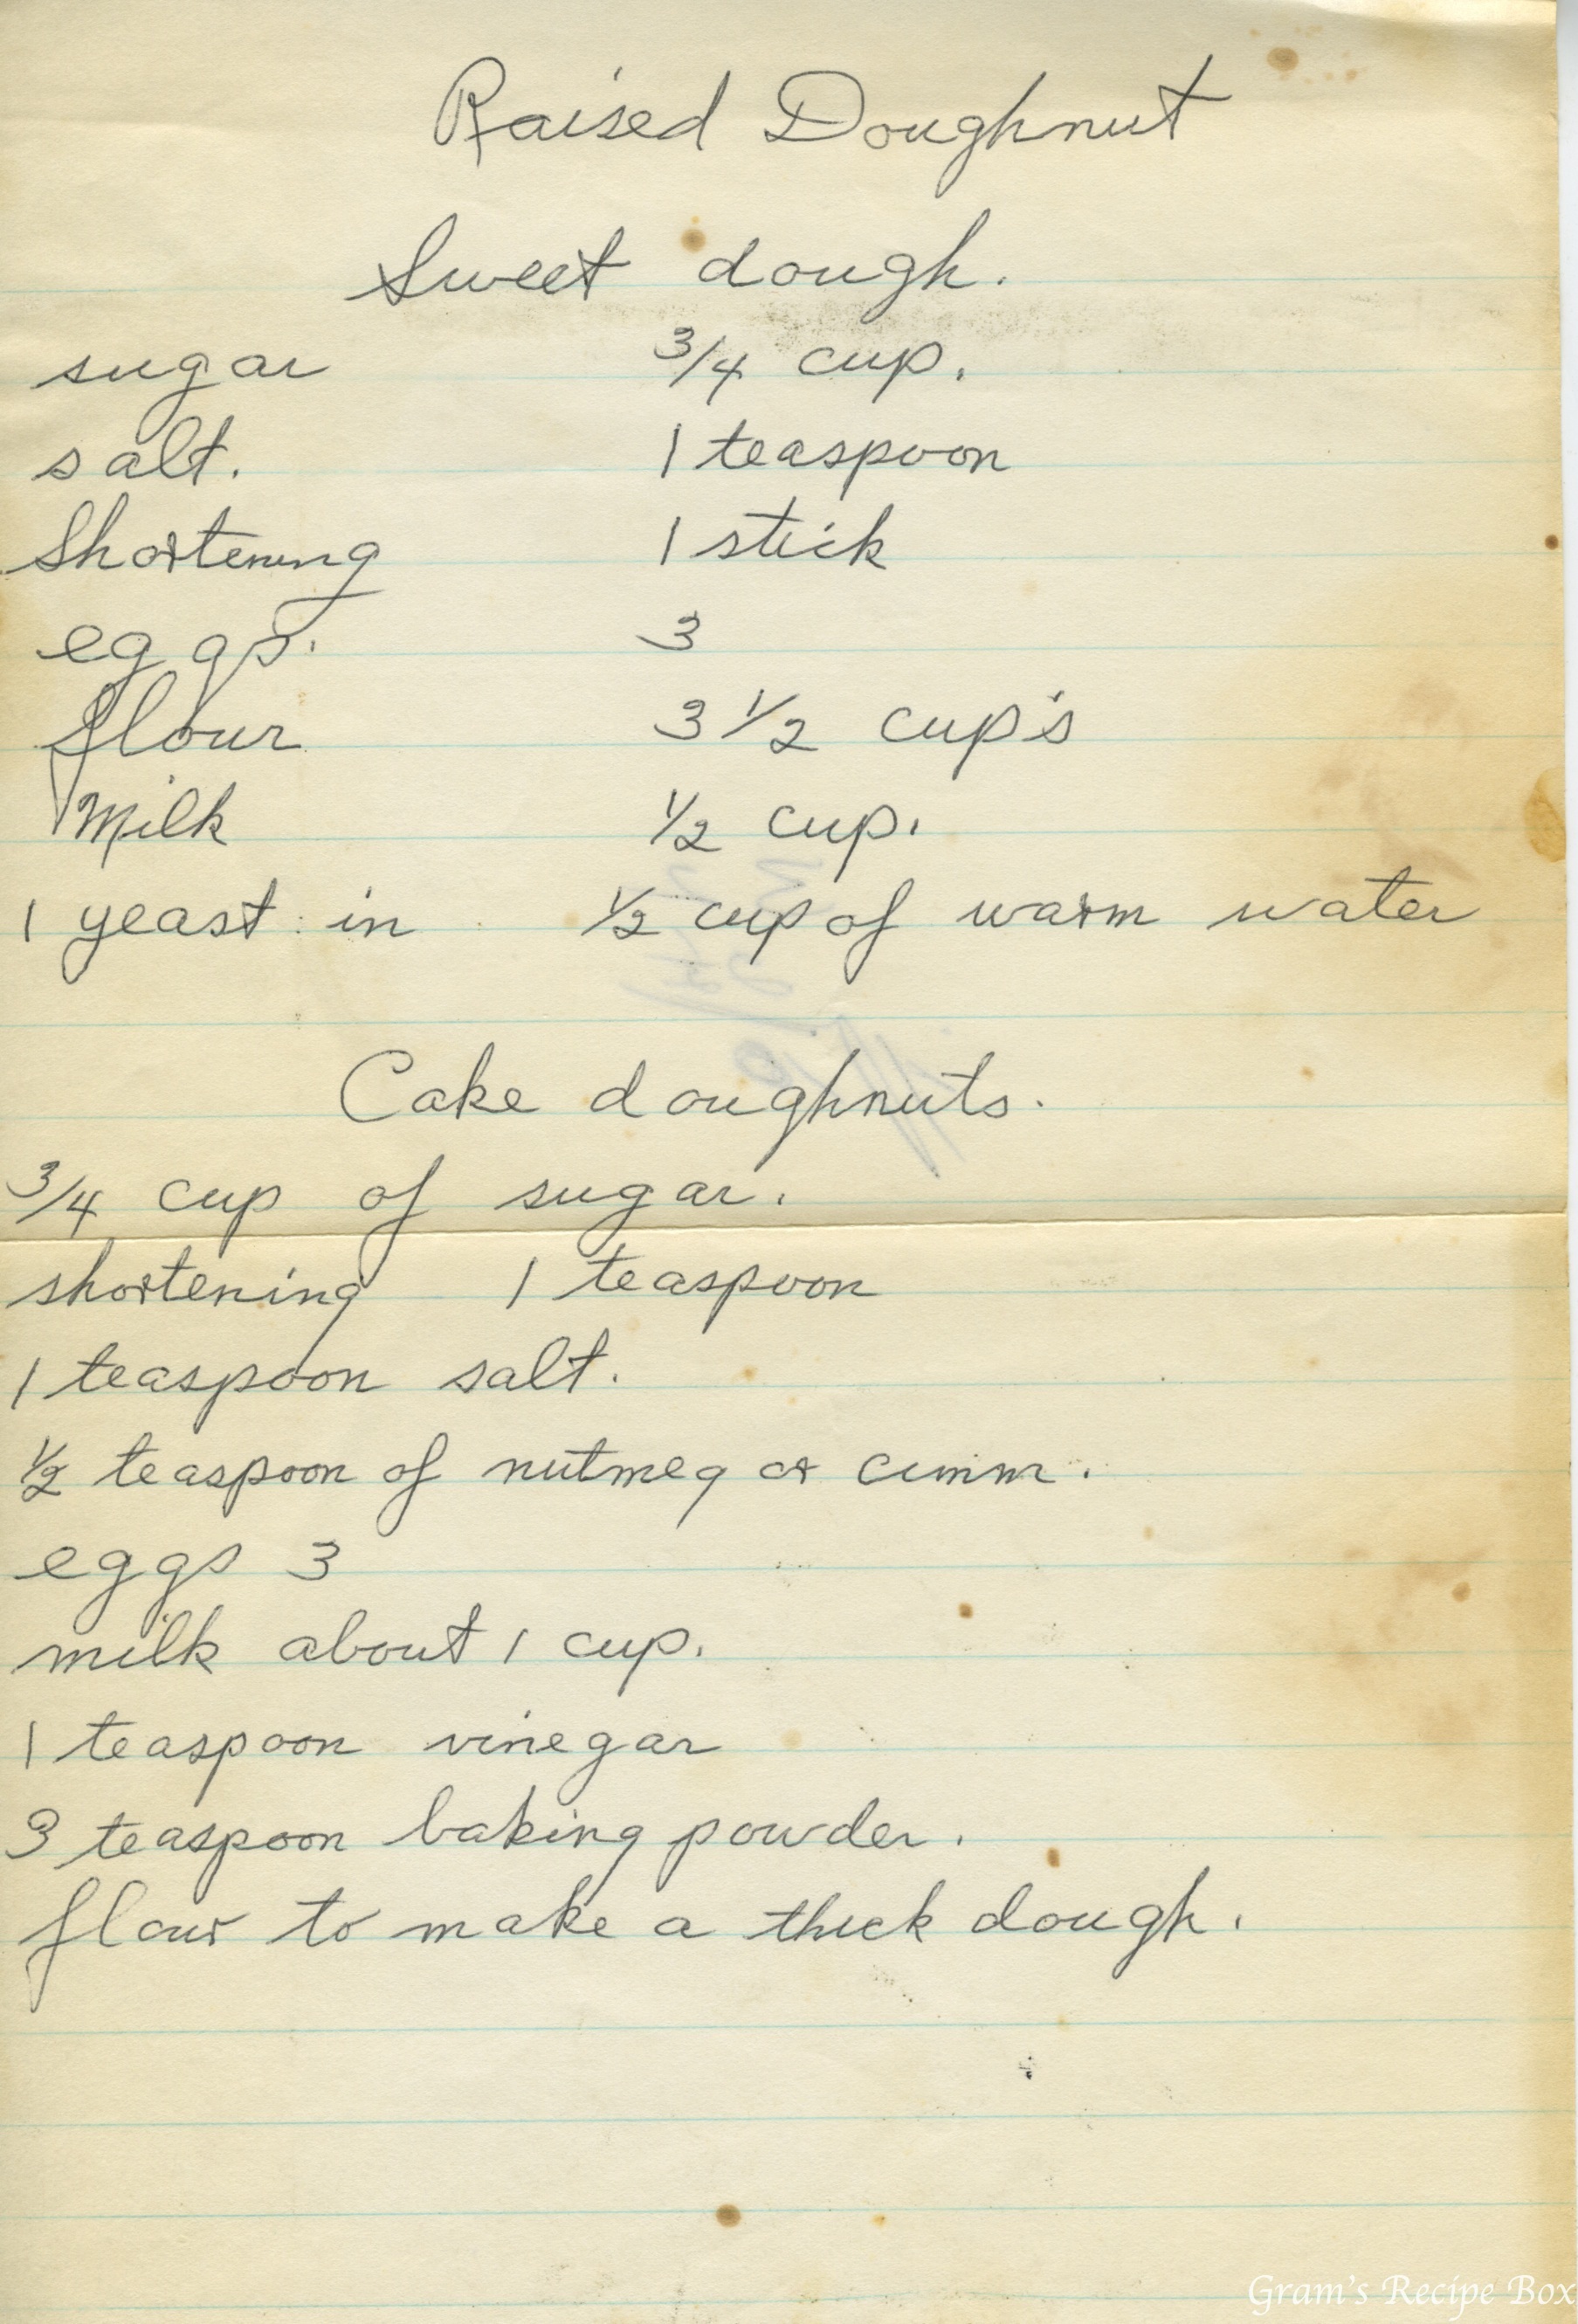 Raised Doughnut
Sweet dough.
sugar 3/4 cup.
salt. 1 teaspoon
Shortening 1 stick
eggs. 3
flour 3 1/2 cup's
Milk 1/2 cup.
1 yeast in 1/2 cup of warm water
Cake doughnuts.
3/4 cup of sugar.
shortening 1 teaspoon
1 teaspoon salt.
1/2 teaspoon of nutmeg or cinnm.
eggs 3
milk about 1 cup.
1 teaspoon vinegar
3 teaspoon baking powder.
flour to make a thick dough.
Gram's Recipe Box